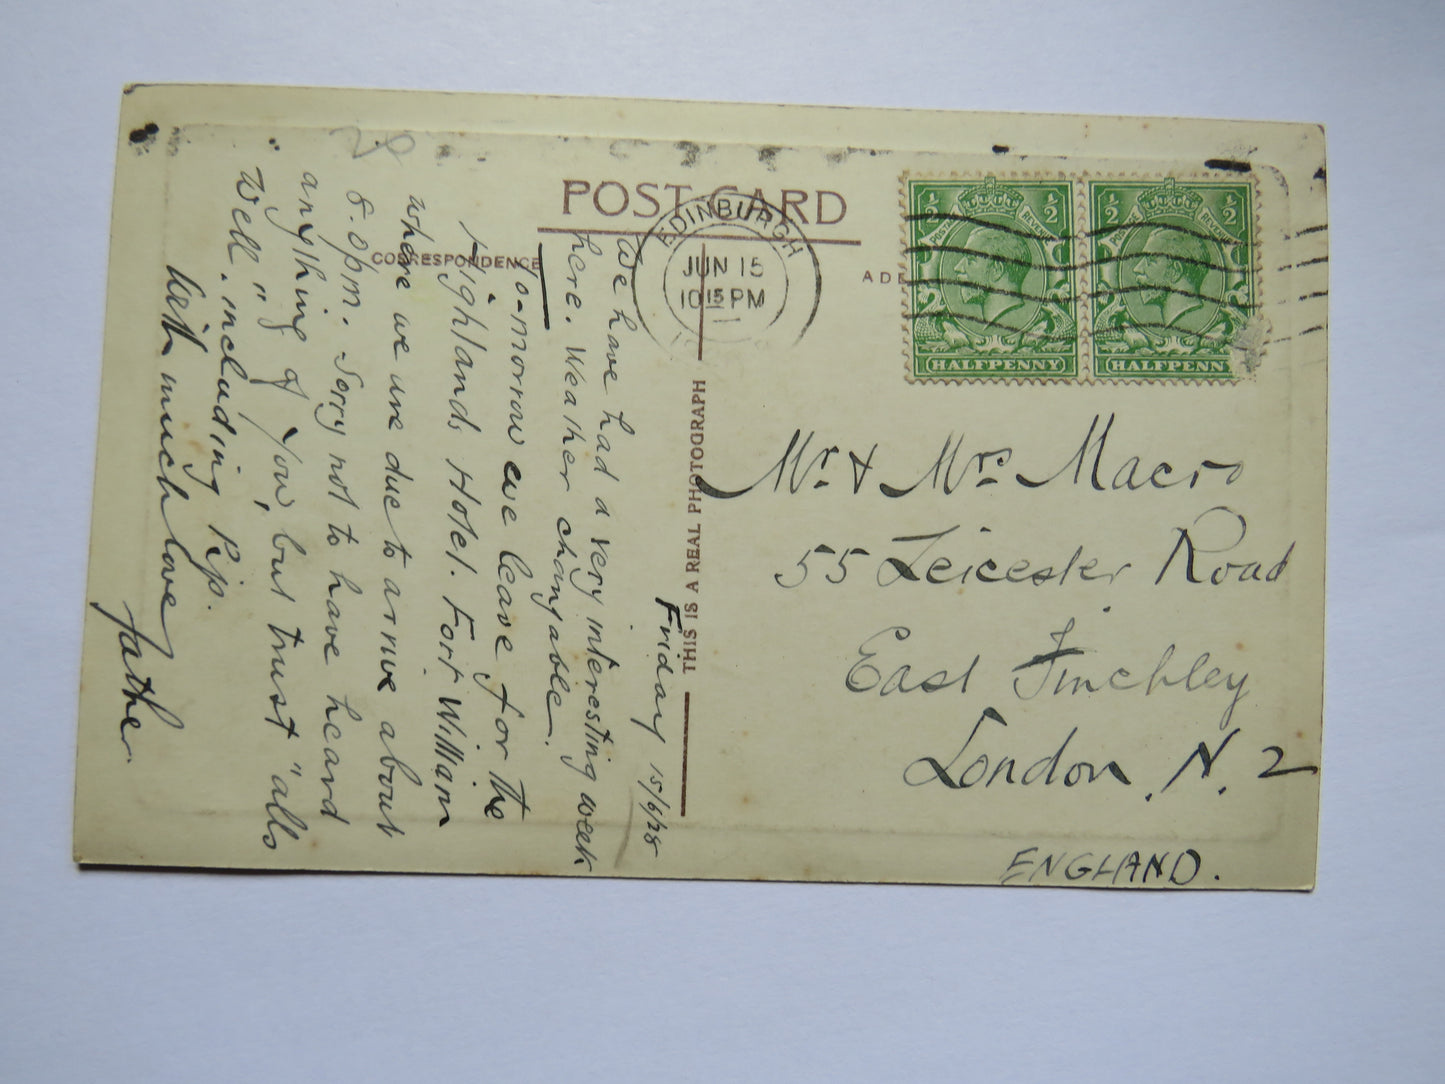 POST CARD
CORRESPONDENCE
THIS IS A REAL PHOTOGRAPH
EDINBURGH
JUN 15
10 15 PM
½ ½
POSTAGE REVENUE
HALFPENNY
½ ½
POSTAGE REVENUE
HALFPENN
Friday 15/6/28
We have had a very interesting week
here. Weather changable.
To-morrow we leave for the
Highlands Hotel. Fort William
where we are due to arrive about
8.0pm. Sorry not to have heard
anything of You, but trust "alls
Well", including Pip.
With much love
Father
Mr. & Mrs Macro
55 Leicester Road
East Finchley
London. N. 2
ENGLAND.